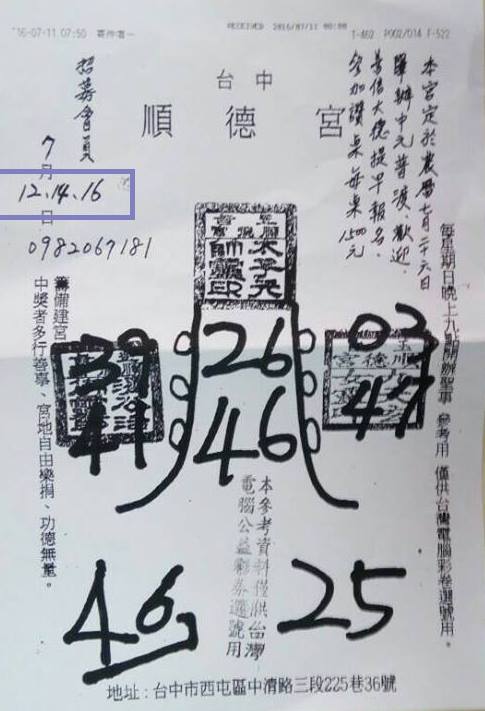 '16-07-11 07:50 寄件者-
RECEIVED 2016/07/11 00:00
T-462 P002/014 F-522
台中
順德宮
本宮定於農曆七月二十六日
舉辦中元普渡、歡迎
善信大德提早報名、
參加讚桌每桌1500元
招募會員
7月
12.14.16
日
0982067181
每星期日晚上九點開辦聖事 參考用 僅供台灣電腦彩卷選號用。
籌備建宮
中獎者多行善事、宮地自由樂捐、功德無量。
太平元
帥靈印
39
41
26
46
03
47
46
25
本參考資料僅供台灣
電腦公益彩券選號用
地址:台中市西屯區中清路三段225巷36號